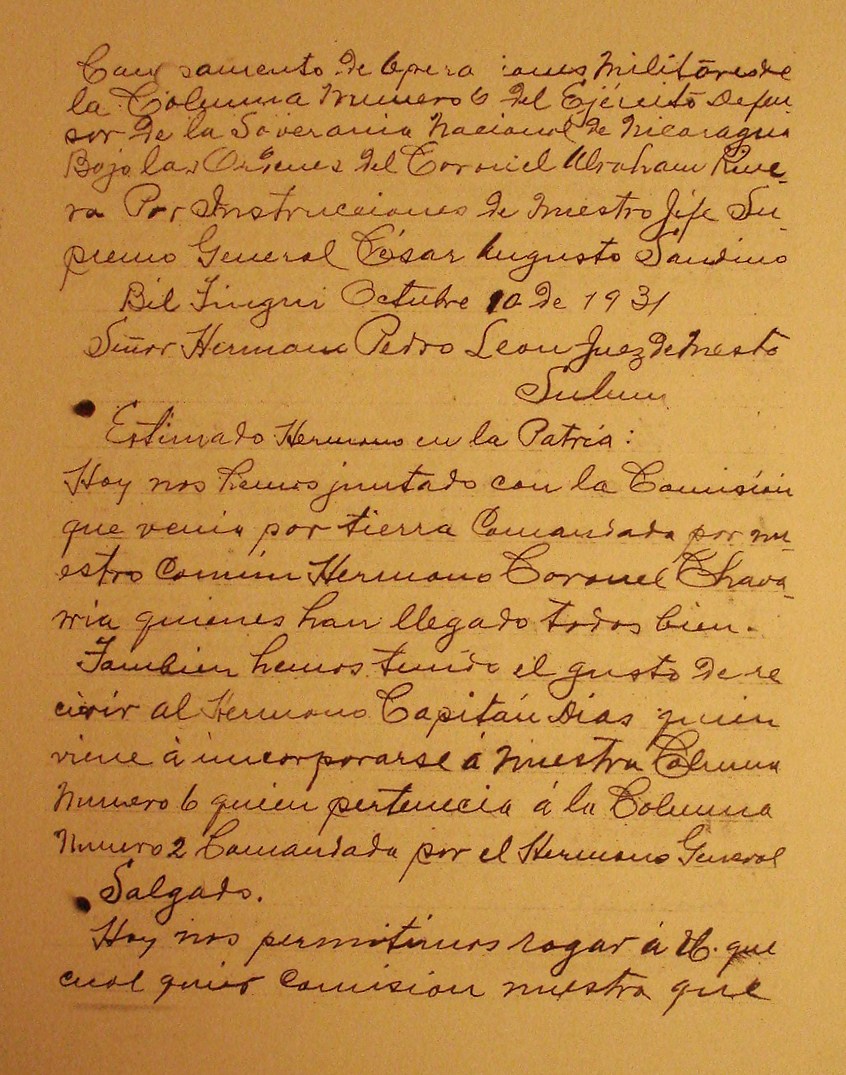 Cam samento de Opera iones Militares de
la Columna Numero 6 del Ejército Defen-
sor de la Soverania Nacional de Nicaragua
Bajo las Ordenes del Coronel Abraham Rive-
ra Por Instrucciones de Nuestro Jefe Su-
premo General César Augusto Sandino
Bil Tingni Octubre 10 de 1931
Señor Hermano Pedro Leon Juez de Mesta
Sulum
Estimado Hermano en la Patria:
Hoy nos hemos juntado con la Comisión
que venia por tierra Comandada por nu-
estro Común Hermano Coronel Chava-
rria quienes han llegado todos bien.
Tambien hemos tenido el gusto de re
civir al Hermano Capitán Dias quien
viene á incorporarse á Nuestra Columna
Numero 6 quien pertenecia á la Columna
Numero 2 Comandada por el Hermano General
Salgado.
Hoy nos permitimos rogar á U. que
cual quier Comision nuestra que